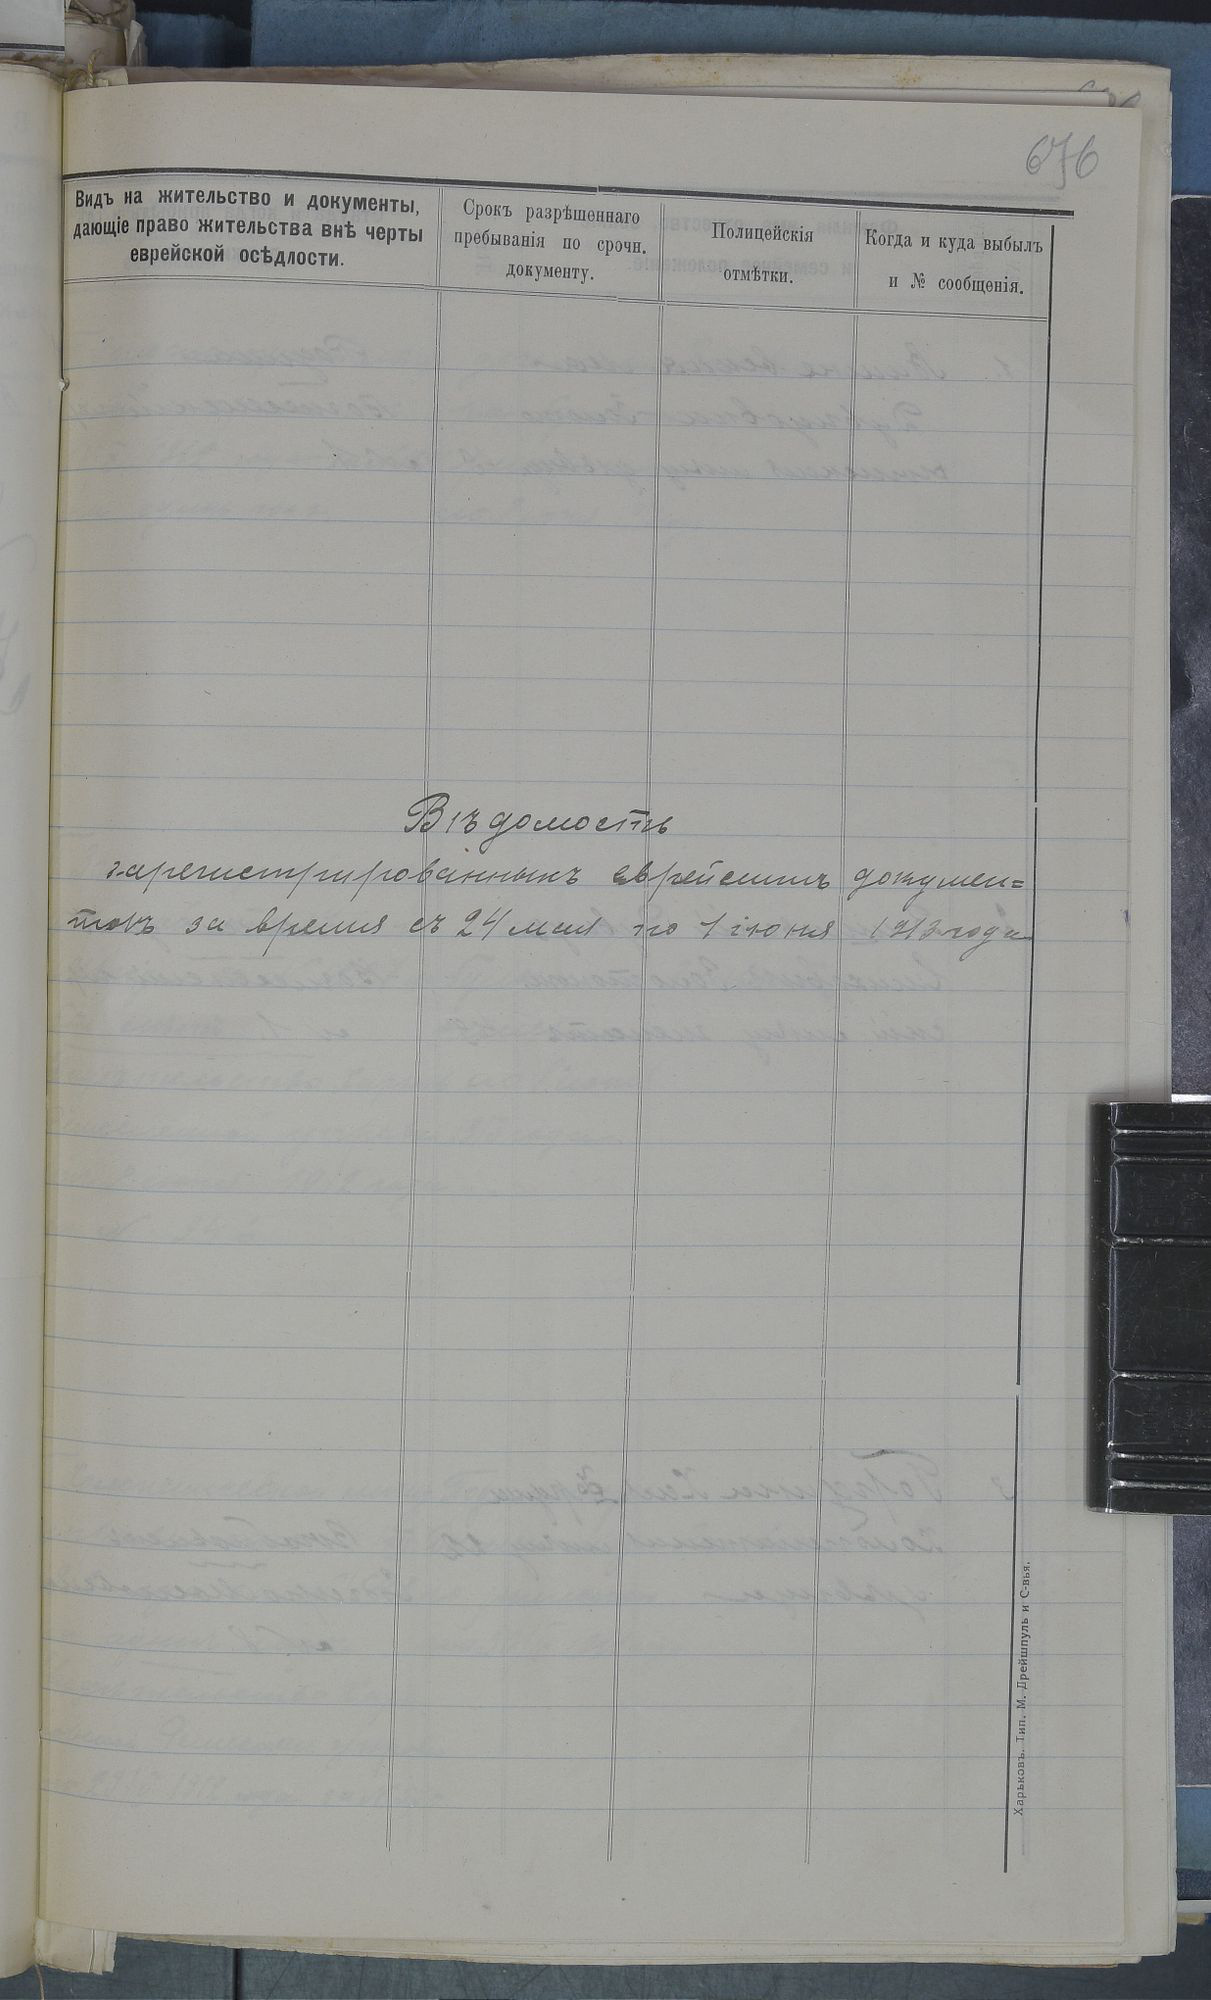 676
Видъ на жительство и документы,
дающіе право жительства внѣ черты
еврейской осѣдлости.
Срокъ разрѣшеннаго
пребыванія по срочн.
документу.
Полицейскія
отмѣтки.
Когда и куда выбылъ
и № сообщенія.
Вѣдомость
зарегистрированныхъ еврейскихъ докумен=
товъ за время съ 24 мая по 1 іюня 1913 года
Харьковъ. Тип. М. Дрейшпуль и С-вья.